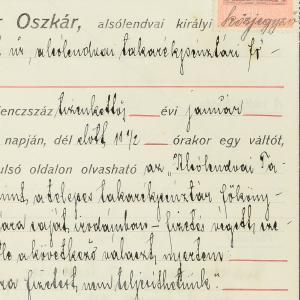 r Oszkár, alsólendvai királyi közjegyző
úr, alsólendvai takarékpénztári fi-
enczszáz tizenkettő évi január
napján, dél előtt 10 1/2 órakor egy váltót,
ulsó oldalon olvasható az „Alsólendvai Ta-
mint, a telepes takarékpénztár főköny-
saját irodámban fizetés végett
a következő választ nyertem:
fizetést nem teljesíthetünk".